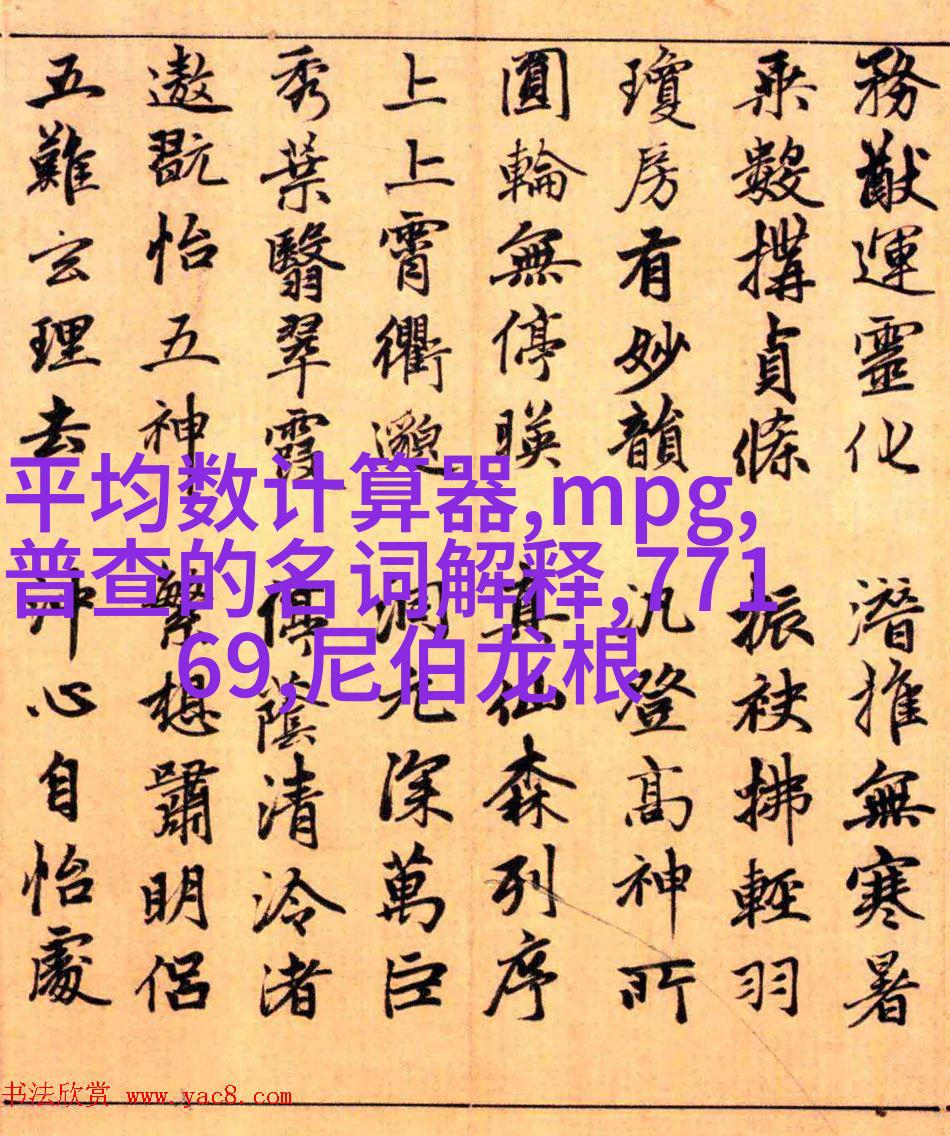 務猷運靈化 潛推無寒暑
乘數搆貞條 振袂拂輕羽
瓊房有妙韻 汎登高神所
圓輪無停暎 真仙森列序
上上霄衢邈 洞元深萬巨
秀葉翳翠霞 停蔭清泠渚
遨翫怡五神 繁想嘯明侶
五難玄理去 沖心自怡處
平均数计算器,mpg,
普查的名词解释,771
69,尼伯龙根
书法欣赏 www.yac8.com